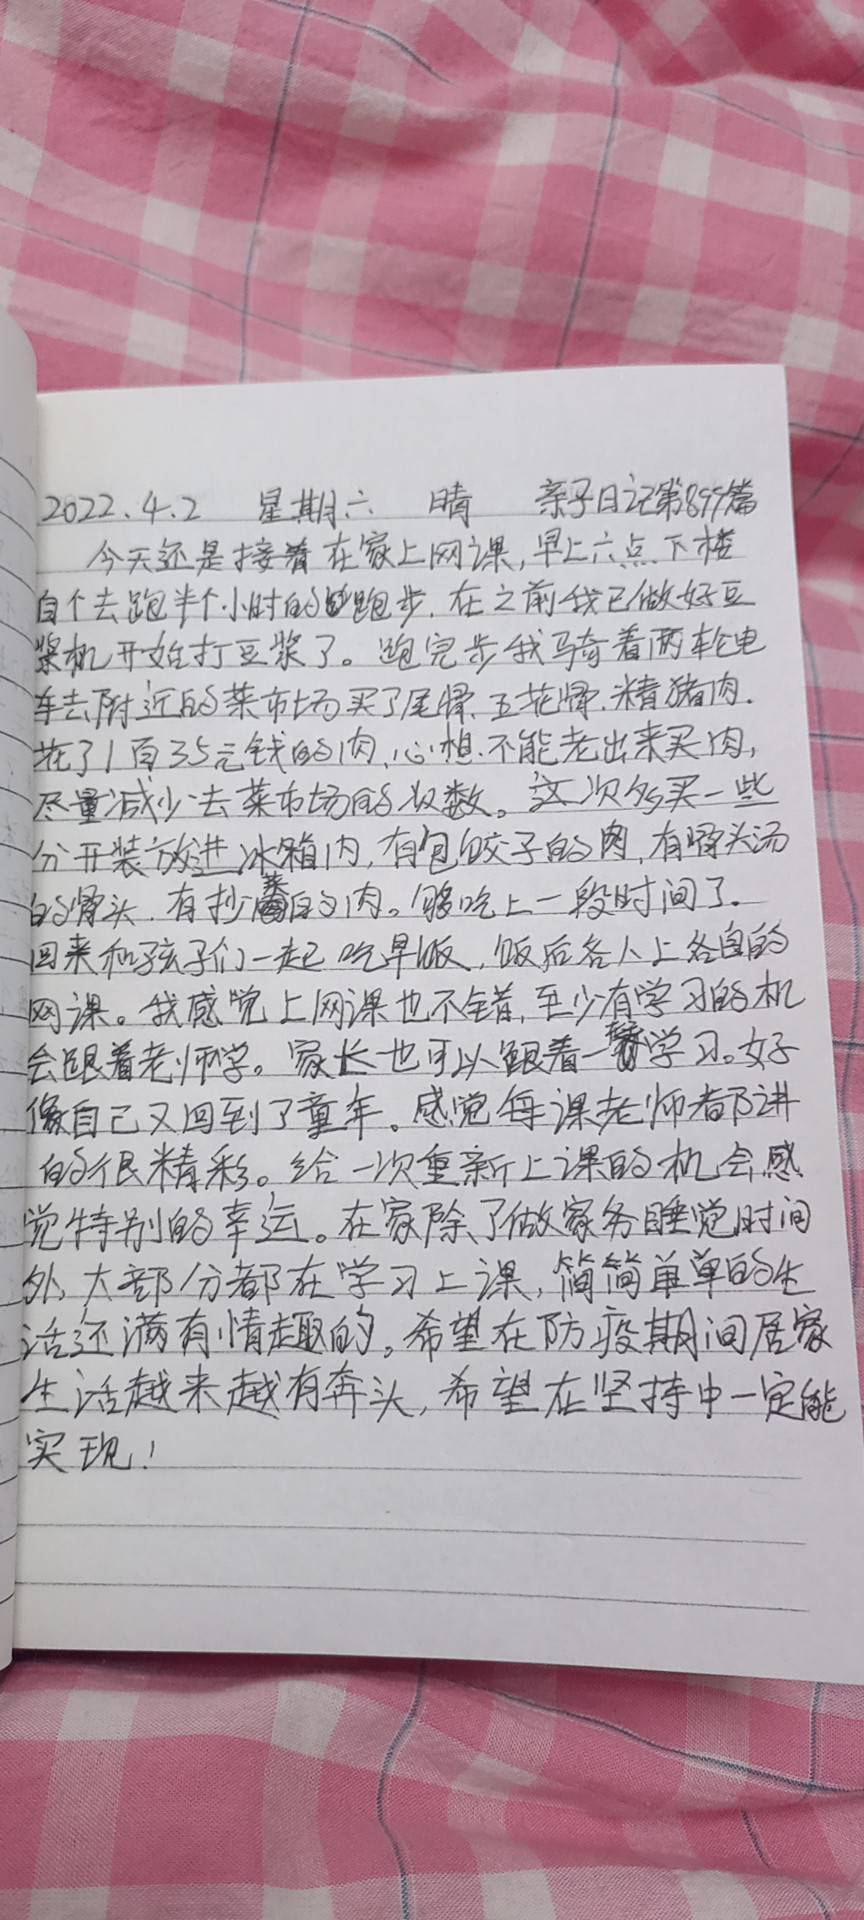 2022.4.2 星期六 晴 亲子日记第899篇
今天还是接着在家上网课,早上六点下楼
自个去跑半个小时的跑步.在之前我已做好豆
浆机开始打豆浆了。跑完步我骑着两轮电
车去附近的菜市场买了尾骨.五花骨.精猪肉.
花了1百35元钱的肉,心想.不能老出来买肉,
尽量减少去菜市场的次数。这次多买一些
分开装放进冰箱内,有包饺子的肉,有骨头汤
的骨头.有抄菜的肉。够吃上一段时间了.
回来和孩子们一起吃早饭,饭后各人上各自的
网课。我感觉上网课也不错,至少有学习的机
会跟着老师学。家长也可以跟着一起学习。好
像自己又回到了童年。感觉每课老师都讲
的很精彩。给一次重新上课的机会感
觉特别的幸运。在家除了做家务睡觉时间
外,大部分都在学习上课,简简单单的生
活还满有情趣的。希望在防疫期间居家
生活越来越有奔头,希望在坚持中一定能
实现!